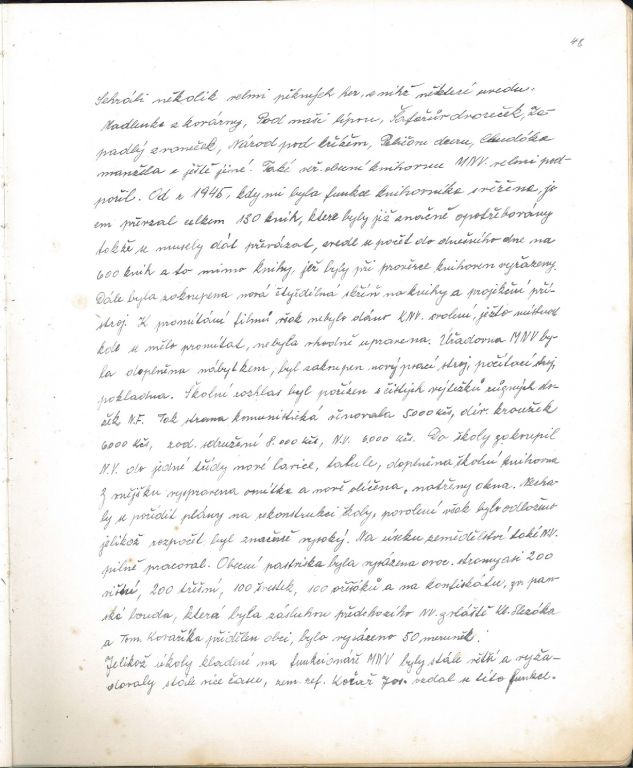 48
Sehráli několik velmi pěkných her, z nichž některé uvedu:
Madlenka z kovárny, Pod naší lípou, Kafařův dvoreček, Za-
padlý zvoneček, Národ pod křížem, Pekičova dcera, Chudáka
manžela a ještě jiné. Také veř. obecní knihovnu MNV. velmi pod-
pořil. Od r 1945, kdy mi byla funkce knihovníka svěřena, js-
em převzal celkem 130 knih, které byly již značně opotřebovány
takže se musely dát převázat, zvedl se počet do dnešního dne na
600 knih a to mimo knihy, jež byly při prověrce knihoven vyřazeny.
Dále byla zakoupena nová čtyřdílná skříň na knihy a projekční pří-
stroj. K promítání filmů však nebylo dáno KNV. svolení, ježto místnost
kde se mělo promítat, nebyla vhodně upravena. Úřadovna MNV by-
la doplněna nábytkem, byl zakoupen nový psací stroj, počítací stroj,
pokladna. Školní rozhlas byl pořízen z čistých výtěžků různých slo-
žek N.F. Tak strana komunistická věnovala 5000 Kčs, div. kroužek
6000 Kčs, rod. sdružení 8.000 Kčs, N.V. 6000 Kčs. Do školy zakoupil
N.V. do jedné třídy nové lavice, tabule, doplněna školní knihovna
Z vnějšku vyspravena omítka a nově obílena, natřeny okna. Necha-
ly se pořídit plány na rekonstrukci školy, povolení však bylo odloženo
jelikož rozpočet byl značně vysoký. Na úseku zemědělství také N.V.
pilně pracoval. Obecní pastviska byla vysázena ovoc. stromy asi 200
višní, 200 třešní, 100 švestek, 100 ořešáků a na konfiskátu, zv. pan-
ská bouda, která byla zásluhou předchozího NV. zvláště Kl. Slezáka
a Tom. Kovaříka přidělen obci, bylo vysázeno 50 meruněk.
Jelikož úkoly kladené na funkcionáře MNV byly stále větší a vyža-
dovaly stále více času, zem. ref. Kočař Jos. vzdal se této funkce.